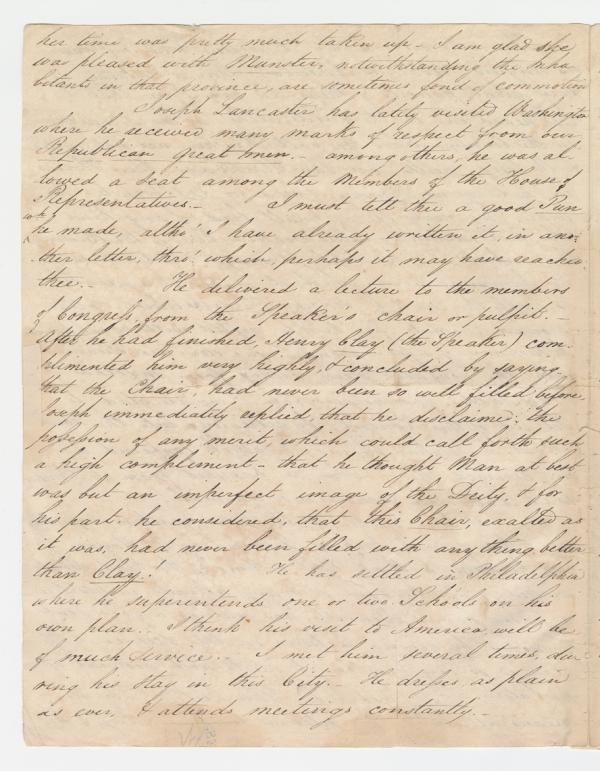 her time was pretty much taken up – I am glad she
was pleased with Munster, notwithstanding the inha
bitants in that province, are sometimes fond of commotion
Joseph Lancaster has lately visited Washington
where he received many marks of respect from our
Republican great men. – among others, he was al
lowed a seat among the Members of the House of
Representatives. – I must tell thee a good Pun
he made, altho' I have already written it, in ano-
ther letter, thro' which, perhaps it may have reached
thee. – He delivered a lecture to the members
of Congress, from the Speaker's chair or pulpit. –
After he had finished, Henry Clay (the Speaker) com-
plimented him very highly, & concluded by saying,
that the Chair, had never been so well filled before
Joseph immediately replied, that he disclaimed the
possession of any merit, which could call forth such
a high compliment – that he thought Man at best
was but an imperfect image of the Deity, & for
his part, he considered, that this Chair, exalted as
it was, had never been filled with any thing better
than Clay! He has settled in Philadelphia
where he superintends one or two Schools on his
own plan. I think his visit to America will be
of much service. – I met him several times, du-
ring his stay in this City. – He dresses, as plain
as ever, & attends meetings constantly. –